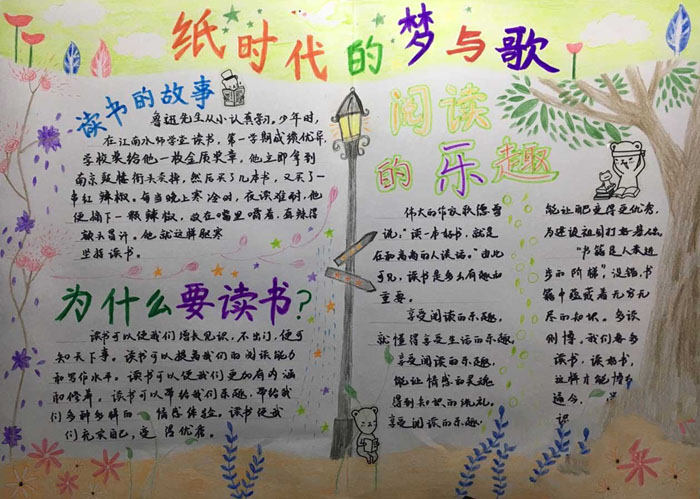 纸时代的梦与歌
读书的故事
鲁迅先生从小认真学习。少年时，
在江南水师学堂读书，第一学期成绩优异，
学校奖给他一枚金质奖章，他立即拿到
南京鼓楼街头卖掉，然后买了几本书，又买了一
串红辣椒。每当晚上寒冷时，夜读难耐，他
便摘下一颗辣椒，放在嘴里嚼着，直辣得
额头冒汗。他就这样驱寒
坚持读书。
为什么要读书?
读书可以使我们增长见识，不出门，便可
知天下事。读书可以提高我们的阅读能力
和写作水平。读书可以使我们更加有内涵
和修养。读书可以带给我们乐趣，带给我
们多种多样的情感体验。读书使我
们充实自己，变得优秀。
阅读
的乐趣
伟大的作家歌德曾
说，“读一本好书，就是
在和高尚的人谈话。”由此
可见，读书是多么有趣和
重要。
享受阅读的乐趣，
就懂得享受生活的乐趣。
享受阅读的乐趣，
能让情感和灵魂
得到知识的洗礼。
享受阅读的乐趣，
能让变得更优秀，
为建设祖国打好基石。
“书籍是人类进
步的阶梯”没错，书
籍中蕴藏着无穷无
尽的知识。多读
们要多
读书，读好书，
这样才能博
通今，
识